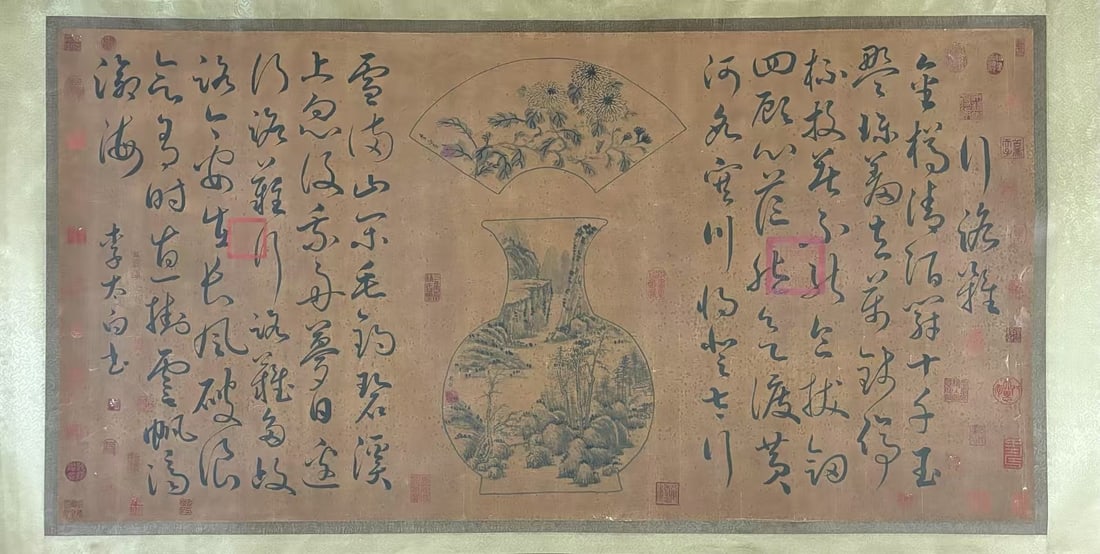 行路難
金樽清酒斗十千玉
盤珍羞直萬錢停
杯投箸不能食拔劍
四顧心茫然欲渡黃
河冰塞川將登太行
雪滿山閑垂釣碧溪
上忽復乘舟夢日邊
行路難行路難多岐
路今安在長風破浪
會有時直掛雲帆濟
滄海
李太白書